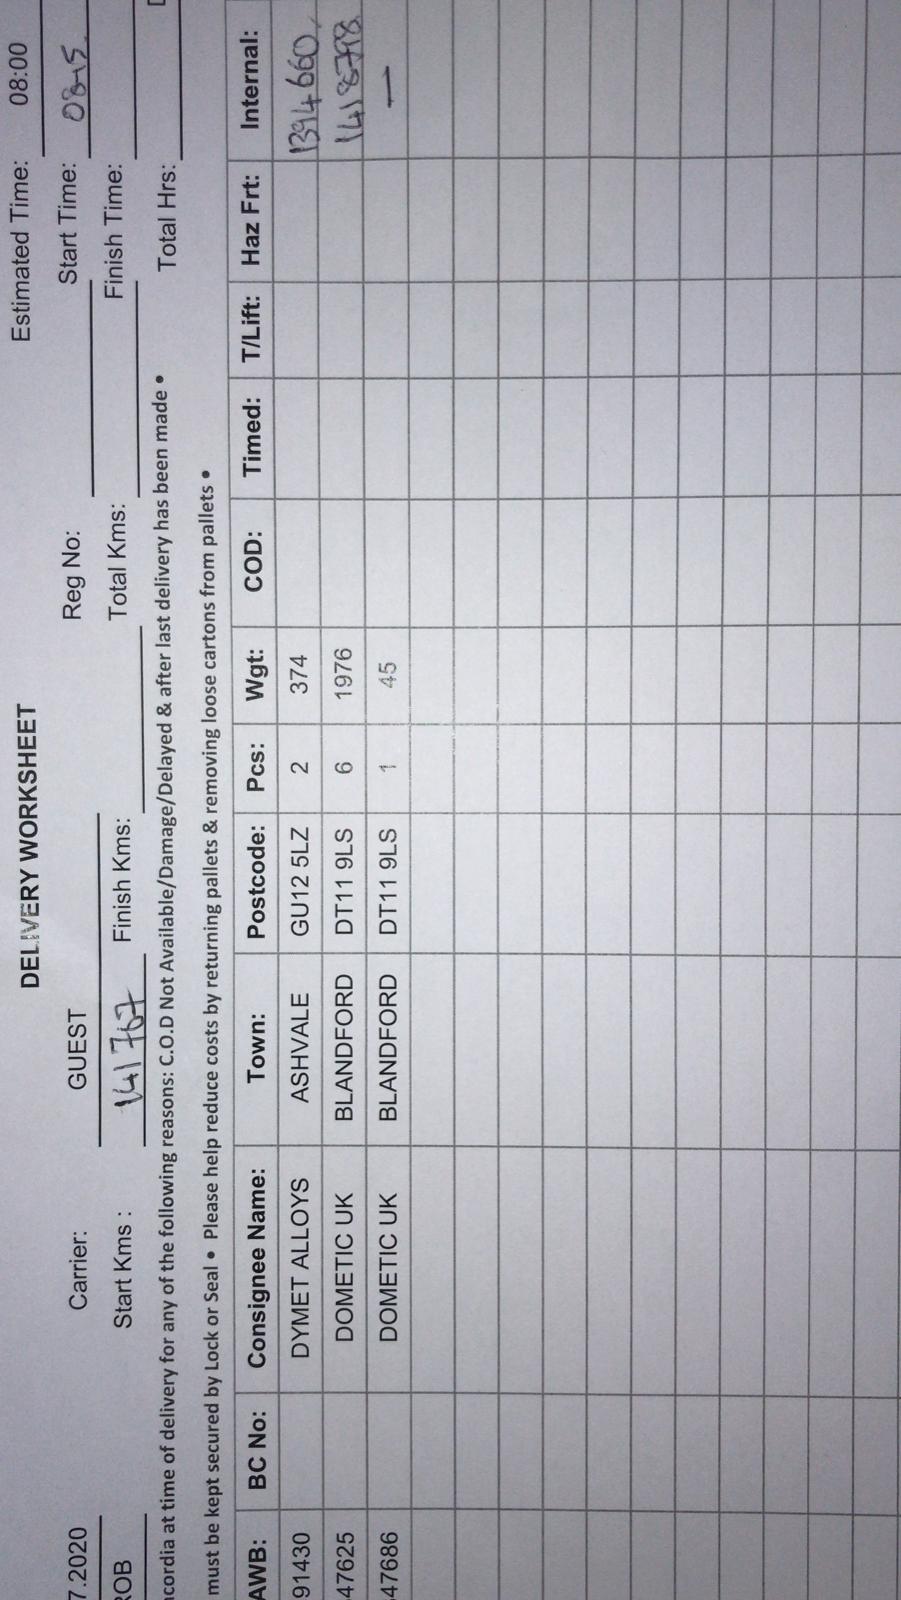 DELIVERY WORKSHEET
Estimated Time: 08:00
7.2020 Carrier: GUEST Reg No: Start Time: 08-15
ROB Start Kms : 141767 Finish Kms: Total Kms: Finish Time:
Total Hrs:
cordia at time of delivery for any of the following reasons: C.O.D Not Available/Damage/Delayed & after last delivery has been made •
must be kept secured by Lock or Seal • Please help reduce costs by returning pallets & removing loose cartons from pallets •
AWB: BC No: Consignee Name: Town: Postcode: Pcs: Wgt: COD: Timed: T/Lift: Haz Frt: Internal:
91430 DYMET ALLOYS ASHVALE GU12 5LZ 2 374 1394660
47625 DOMETIC UK BLANDFORD DT11 9LS 6 1976
47686 DOMETIC UK BLANDFORD DT11 9LS 1 45 —